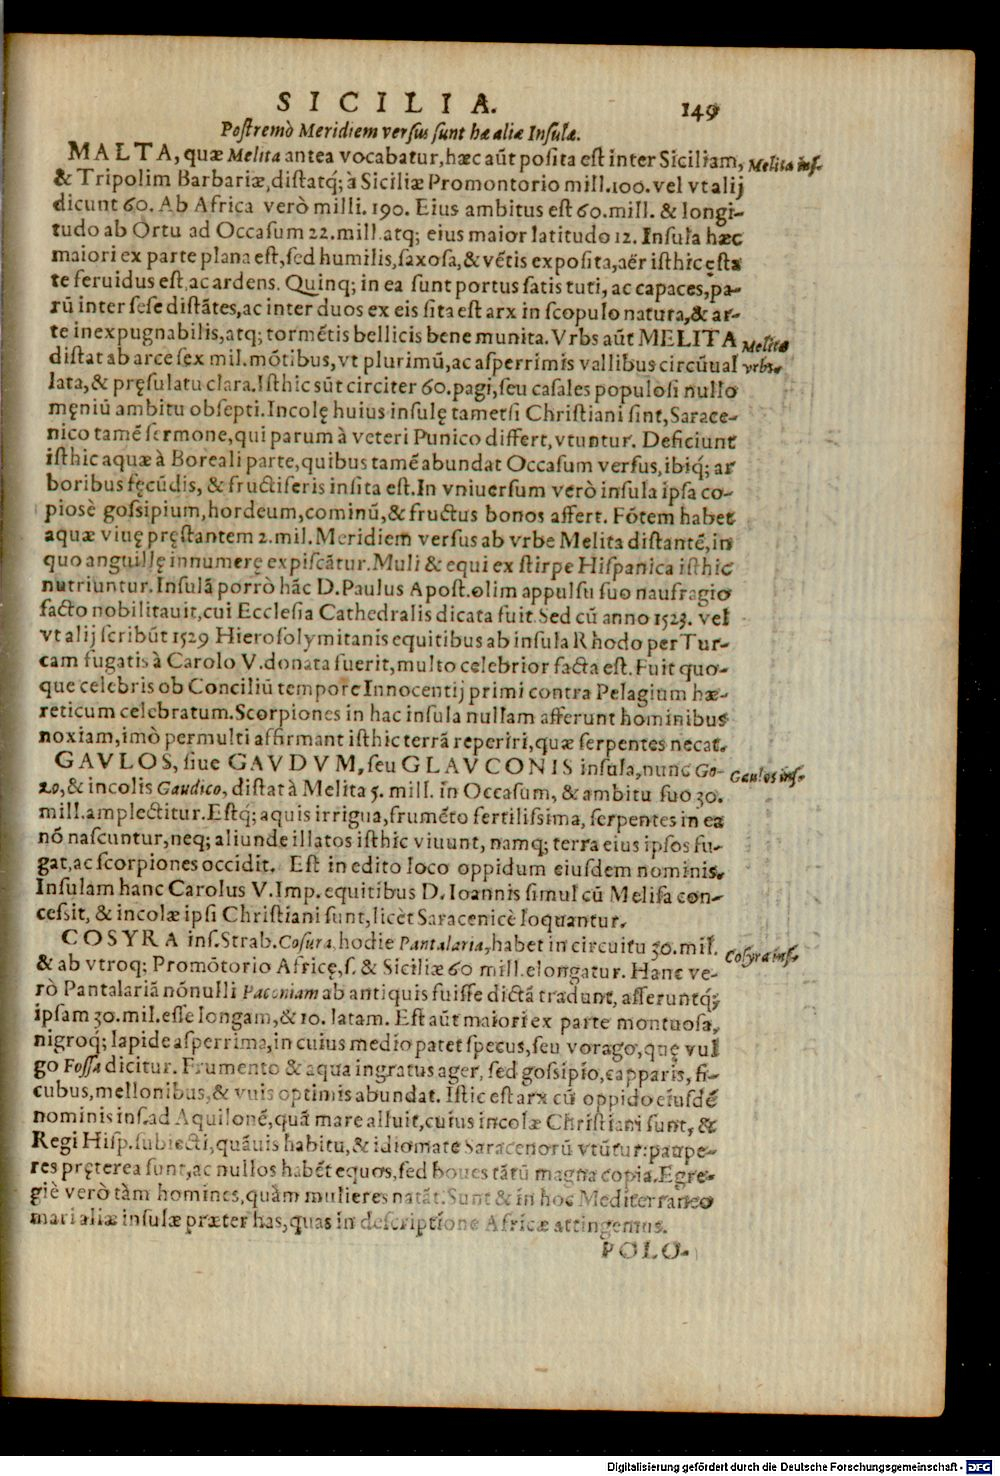 SICILIA. 149
Postremò Meridiem versus sunt hæ aliæ Insulæ.
MALTA, quæ Melita antea vocabatur, hæc aũt posita est inter Siciliam, Melita ins.
& Tripolim Barbariæ, distatq́; à Siciliæ Promontorio mill. 100. vel vt alij
dicunt 60. Ab Africa verò milli. 190. Eius ambitus est 60. mill. & longi-
tudo ab Ortu ad Occasum 22. mill. atq; eius maior latitudo 12. Insula hæc
maiori ex parte plana est, sed humilis, saxosa, & vẽtis exposita, aër isthic ęsta
te feruidus est, ac ardens. Quinq; in ea sunt portus satis tuti, ac capaces, pa-
rũ inter sese distãtes, ac inter duos ex eis sita est arx in scopulo natura, & ar-
te inexpugnabilis, atq; tormẽtis bellicis bene munita. Vrbs aũt MELITA Melita
distat ab arce sex mil. mõtibus, vt plurimũ, ac asperrimis vallibus circũual vrbs.
lata, & pręsulatu clara. Isthic sũt circiter 60. pagi, seu casales populosi nullo
męniũ ambitu obsepti. Incolę huius insulę tametsi Christiani sint, Sarace-
nico tamẽ sermone, qui parum à veteri Punico differt, vtuntur. Deficiunt
isthic aquæ à Boreali parte, quibus tamẽ abundat Occasum versus, ibiq́; ar
boribus fęcũdis, & fructiferis insita est. In vniuersum verò insula ipsa co-
piosè gossipium, hordeum, cominũ, & fructus bonos affert. Fõtem habet
aquæ viuę pręstantem 2. mil. Meridiem versus ab vrbe Melita distantẽ, in
quo anguillę innumerę expiscãtur. Muli & equi ex stirpe Hispanica isthic
nutriuntur. Insulã porrò hãc D. Paulus Apost. olim appulsu suo naufragio
facto nobilitauit, cui Ecclesia Cathedralis dicata fuit. Sed cũ anno 1523. vel
vt alij scribũt 1529 Hierosolymitanis equitibus ab insula Rhodo per Tur-
cam fugatis à Carolo V. donata fuerit, multo celebrior facta est. Fuit quo-
que celebris ob Conciliũ tempore Innocentij primi contra Pelagium hæ-
reticum celebratum. Scorpiones in hac insula nullam afferunt hominibus
noxiam, imò permulti affirmant isthic terrã reperiri, quæ serpentes necat.
GAVLOS, siue GAVDVM, seu GLAVCONIS insula, nunc Go- Gaulos ins.
zo, & incolis Gaudico, distat à Melita 5. mill. in Occasum, & ambitu suo 30.
mill. amplectitur. Estq́; aquis irrigua, frumẽto fertilissima, serpentes in ea
nõ nascuntur, neq; aliunde illatos isthic viuunt, namq; terra eius ipsos fu-
gat, ac scorpiones occidit. Est in edito loco oppidum eiusdem nominis.
Insulam hanc Carolus V. Imp. equitibus D. Ioannis simul cũ Melita con-
cessit, & incolæ ipsi Christiani sunt, licèt Saracenicè loquantur.
COSYRA ins. Strab. Cosura, hodie Pantalaria, habet in circuitu 30. mil. Cosyra ins.
& ab vtroq; Promõtorio Africę, s. & Siciliæ 60 mill. elongatur. Hanc ve-
rò Pantalariã nõnulli Paconiam ab antiquis fuisse dictã tradunt, afferuntq́;
ipsam 30. mil. esse longam, & 10. latam. Est aũt maiori ex parte montuosa,
nigroq́; lapide asperrima, in cuius medio patet specus, seu vorago, quę vul
go Fossa dicitur. Frumento & aqua ingratus ager, sed gossipio, capparis, fi-
cubus, mellonibus, & vuis optimis abundat. Istic est arx cũ oppido eiusdẽ
nominis ins. ad Aquilonẽ, quã mare alluit, cuius incolæ Christiani sunt, &
Regi Hisp. subiecti, quãuis habitu, & idiomate Saracenorũ vtũtur: paupe-
res pręterea sunt, ac nullos habẽt equos, sed boues tãtũ magna copia. Egre-
giè verò tàm homines, quàm mulieres natãt. Sunt & in hoc Mediterraneo
mari aliæ insulæ præter has, quas in descriptione Africæ attingemus.
POLO-
Digitalisierung gefördert durch die Deutsche Forschungsgemeinschaft - DFG